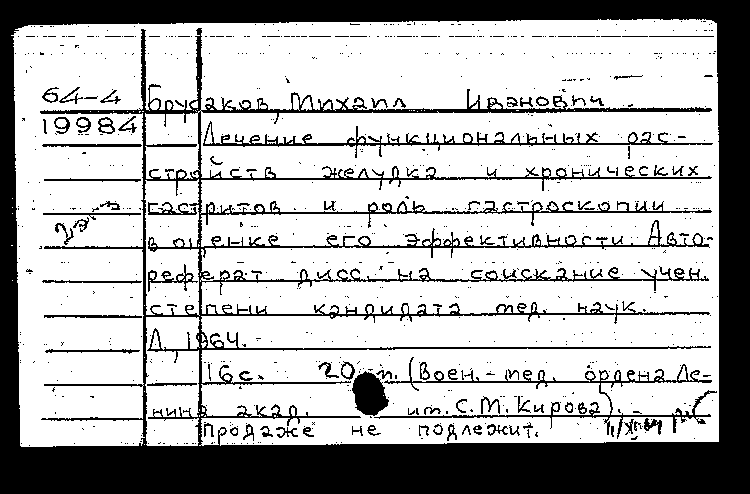 64-4 Брусаков, Михаил Иванович.
19984 Лечение функциональных рас-
стройств желудка и хронических
2 экз гастритов и роль гастроскопии
в оценке его эффективности. Авто-
реферат дисс. на соискание учен.
степени кандидата мед. наук.
Л., 1964.
16 с. 20 см. (Воен.-мед. ордена Ле-
нина акад. им. С.М. Кирова). -
Продаже не подлежит.